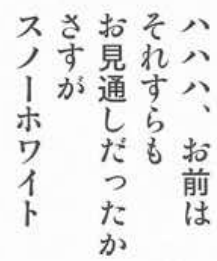 ハハハ、お前は
それすらも
お見通しだったか
さすが
スノーホワイト